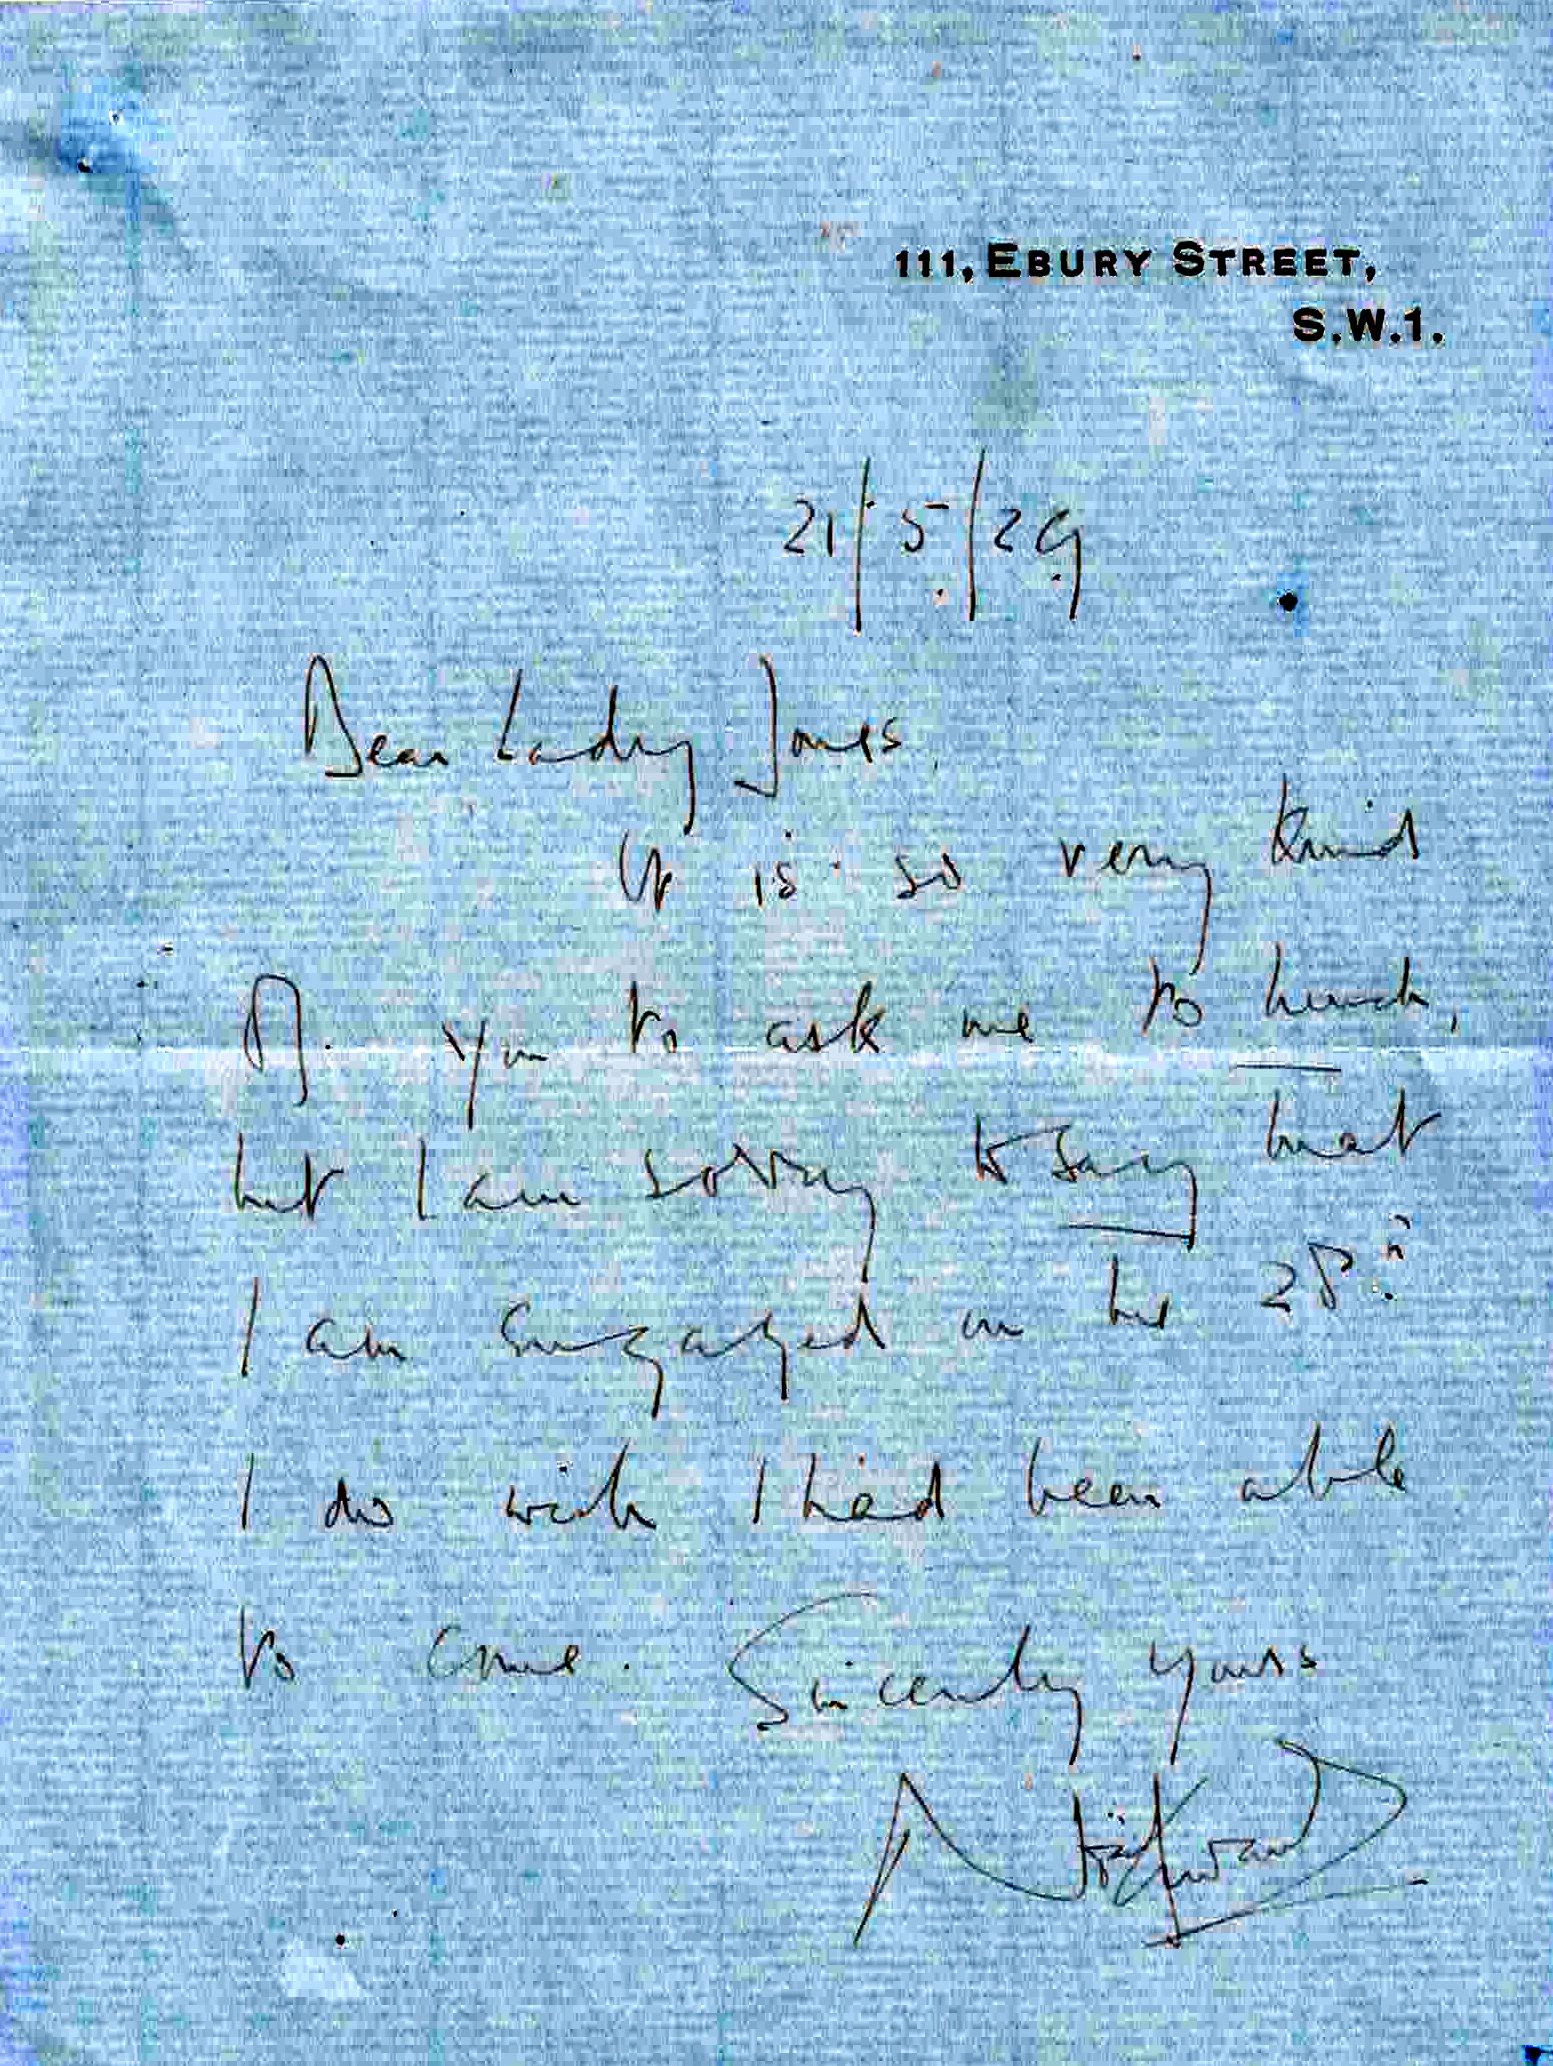 111, EBURY STREET,
S.W.1.
21/5/29
Dear Lady Jones,
It is so very kind
of you to ask me to lunch,
but I am sorry to say that
I am engaged on the 28th
I do wish I had been able
to come. Sincerely yours